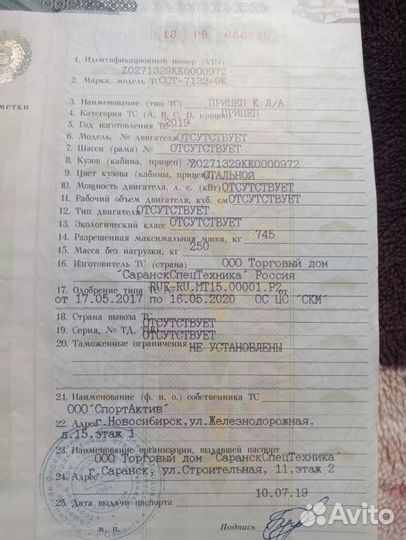 13 РВ
метки
1. Идентификационный номер (VIN)
Z0271329KK0000972
2. Марка, модель ТС ССТ-7132-9К
3. Наименование (тип ТС) ПРИЦЕП К Л/А
4. Категория ТС (A, B, C, D, прицеп) ПРИЦЕП
5. Год изготовления ТС 2019
6. Модель, № двигателя ОТСУТСТВУЕТ
7. Шасси (рама) № ОТСУТСТВУЕТ
8. Кузов (кабина, прицеп) № Z0271329KK0000972
9. Цвет кузова (кабины, прицепа) СТАЛЬНОЙ
10. Мощность двигателя, л. с. (кВт) ОТСУТСТВУЕТ
11. Рабочий объем двигателя, куб. см ОТСУТСТВУЕТ
12. Тип двигателя ОТСУТСТВУЕТ
13. Экологический класс ОТСУТСТВУЕТ
14. Разрешенная максимальная масса, кг 745
15. Масса без нагрузки, кг 250
16. Изготовитель ТС (страна) ООО Торговый дом
"СаранскСпецТехника" Россия
17. Одобрение типа ТС № RUK-RU.MT15.00001.P2
от 17.05.2017 по 16.05.2020 ОС ЦС "СКМ"
18. Страна вывоза ТС ОТСУТСТВУЕТ
19. Серия, № ТД, ТПО ОТСУТСТВУЕТ
20. Таможенные ограничения НЕ УСТАНОВЛЕНЫ
21. Наименование (ф. и. о.) собственника ТС
ООО"СпортАктив"
22. Адрес г.Новосибирск,ул.Железнодорожная,
д.15,этаж 1
23. Наименование организации, выдавшей паспорт
ООО Торговый дом "СаранскСпецТехника"
24. Адрес г.Саранск, ул.Строительная, 11,этаж 2
25. Дата выдачи паспорта 10.07.19
М. П. Подпись
Avito